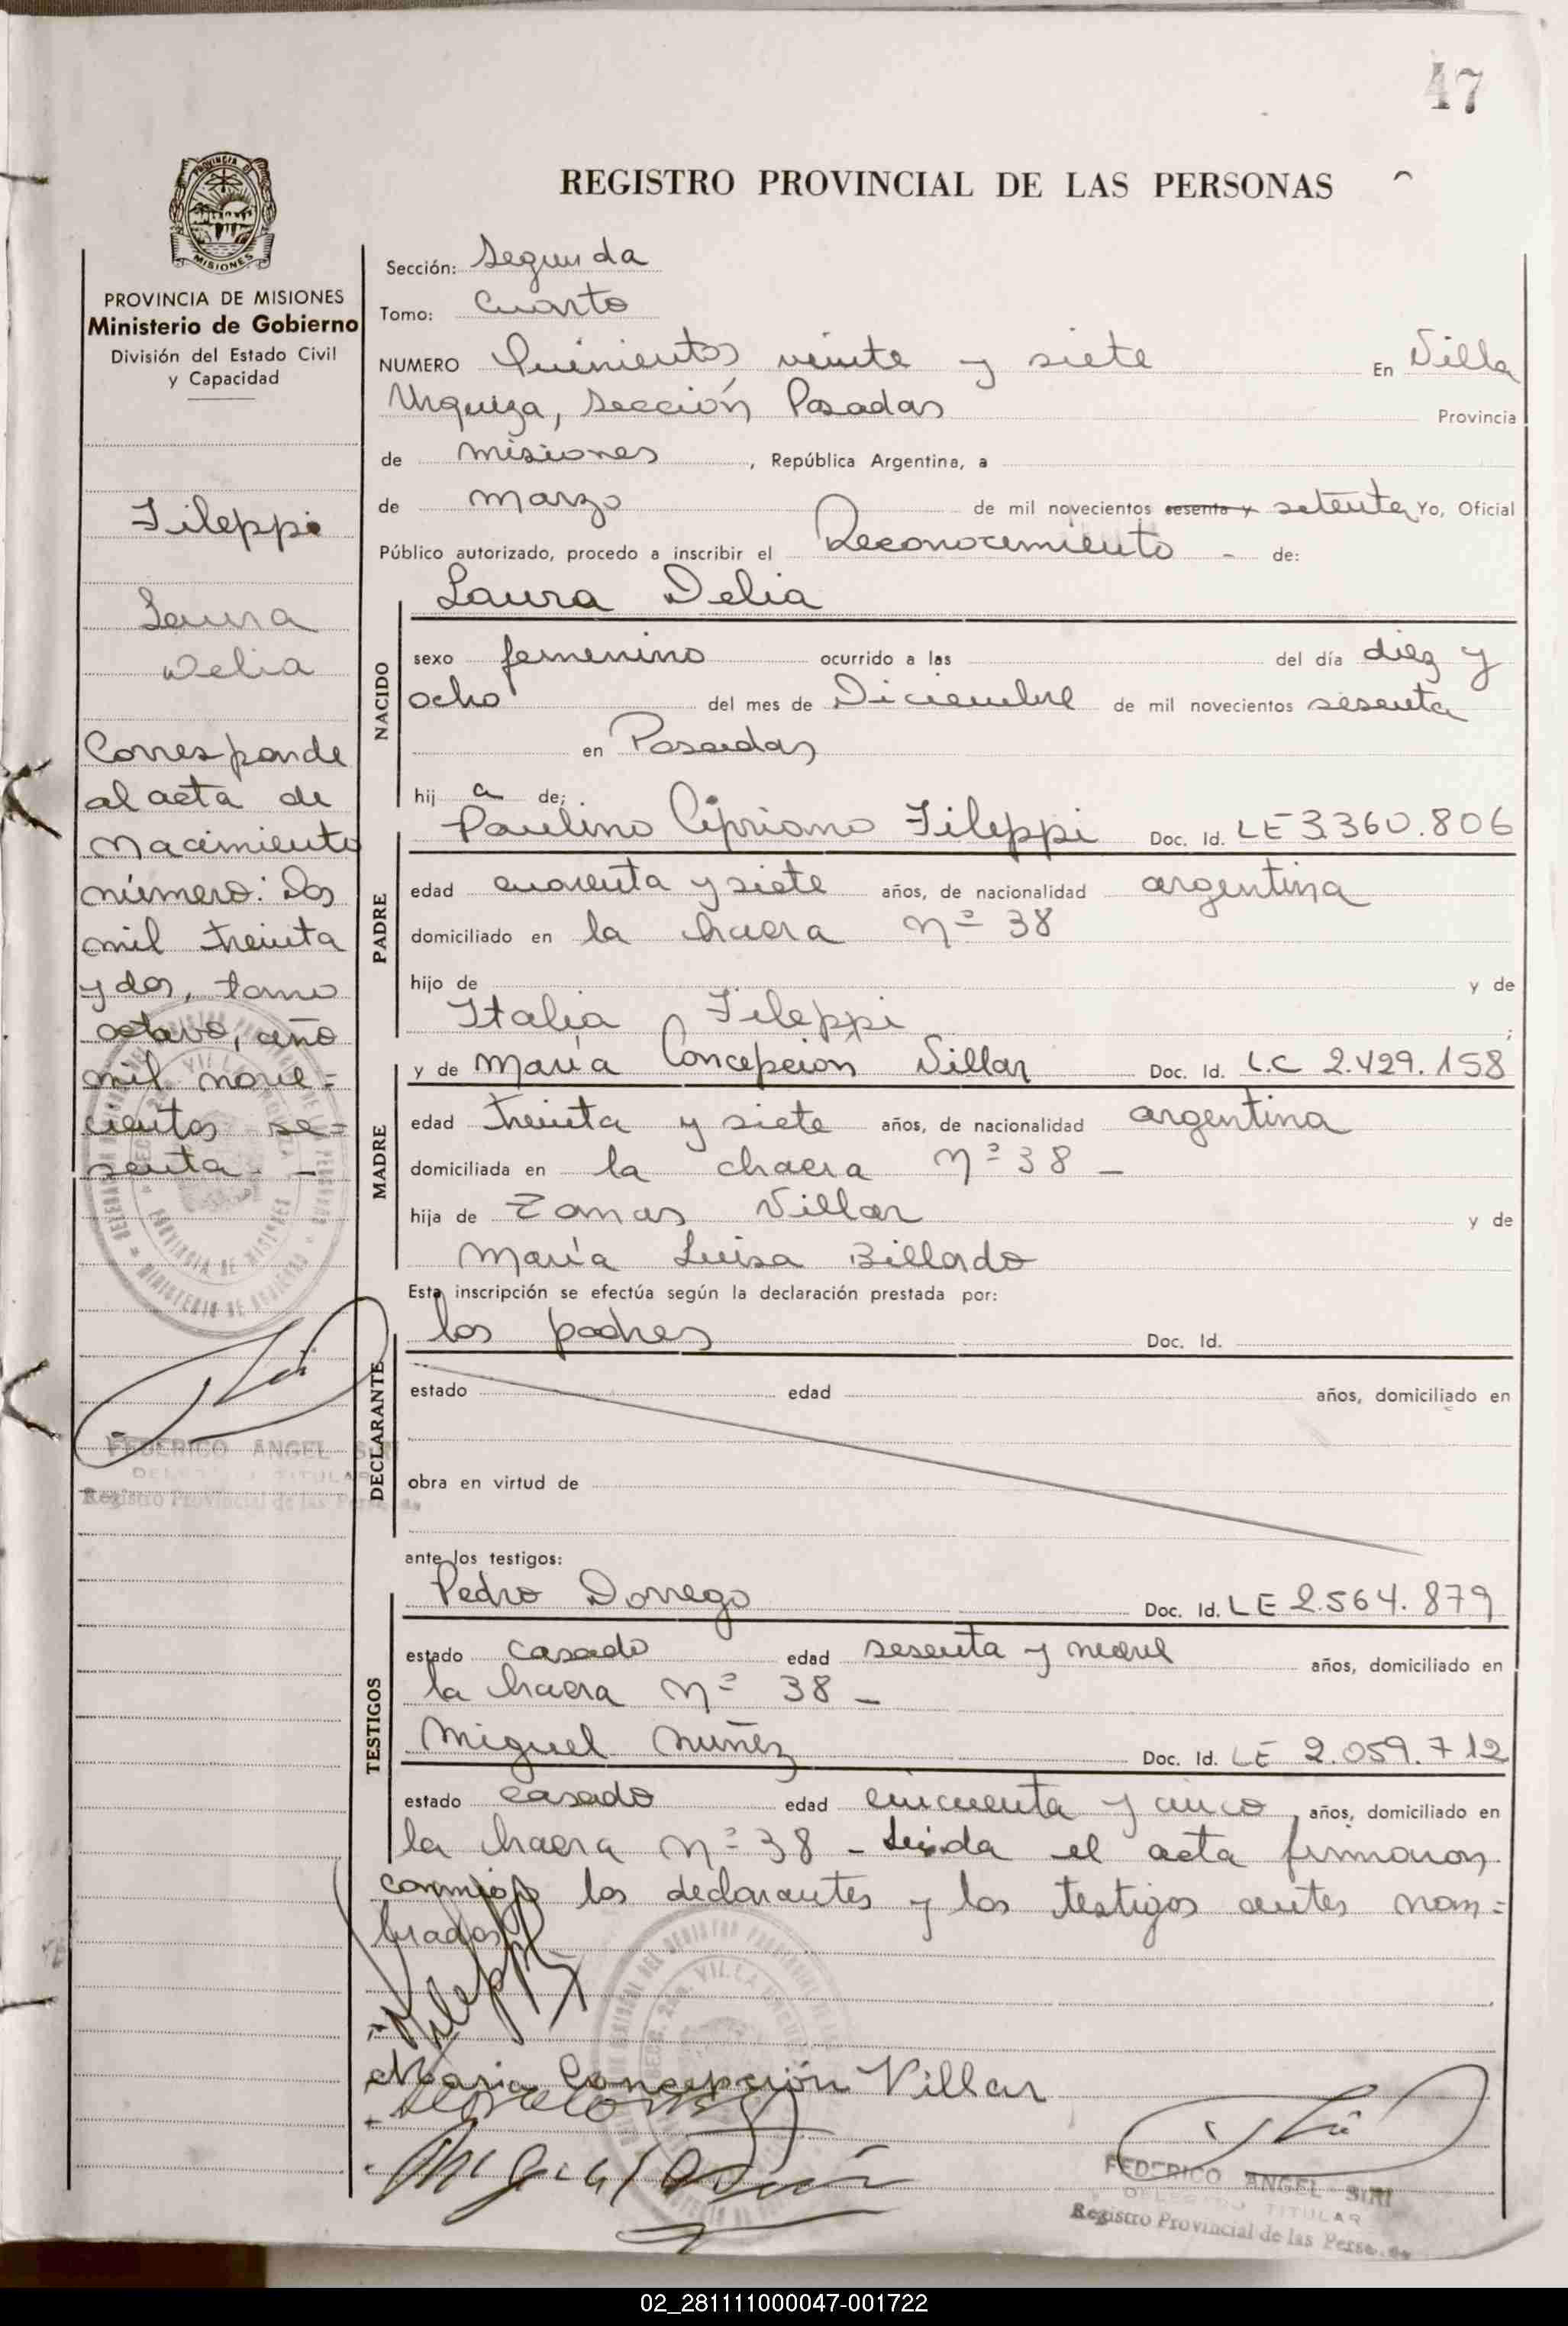 47
REGISTRO PROVINCIAL DE LAS PERSONAS
MISIONES
PROVINCIA DE MISIONES
Ministerio de Gobierno
División del Estado Civil
y Capacidad
Fileppi
Laura
Delia
Corresponde
al acta de
nacimiento
número: Dos
mil treinta
y dos, tomo
octavo, año
mil nove=
cientos se=
senta. -
FEDERICO ANGEL SIRI
DELEGADO TITULAR
Registro Provincial de las Personas
Sección: Segunda
Tomo: Cuarto
NUMERO Quinientos veinte y siete En Villa
Urquiza, Sección Posadas Provincia
de misiones, República Argentina, a
de marzo de mil novecientos sesenta y setenta Yo, Oficial
Público autorizado, procedo a inscribir el Reconocimiento - de:
Laura Delia
NACIDO
sexo femenino ocurrido a las del día diez y
ocho del mes de Diciembre de mil novecientos sesenta
en Posadas
hij a de:
Paulino Cipriano Fileppi Doc. Id. LE 3.360.806
PADRE
edad cuarenta y siete años, de nacionalidad argentina
domiciliado en la chacra nº 38
hijo de y de
Italia Fileppi ;
y de María Concepción Villar Doc. Id. L.C 2.429.158
MADRE
edad treinta y siete años, de nacionalidad argentina
domiciliada en la chacra nº 38 -
hija de Tomas Villar y de
María Luisa Billordo
Esta inscripción se efectúa según la declaración prestada por:
los padres Doc. Id.
DECLARANTE
estado edad años, domiciliado en
obra en virtud de
ante los testigos:
Pedro Dorrego Doc. Id. LE 2.564.879
TESTIGOS
estado casado edad sesenta y nueve años, domiciliado en
la chacra nº 38 -
Miguel Nuñez Doc. Id. LE 2.059.712
estado casado edad cincuenta y cinco, años, domiciliado en
la chacra nº 38 - Leida el acta firmaron
conmigo los declarantes y los testigos antes nom=
brados
Fileppi
Maria Concepción Villar
FEDERICO ANGEL SIRI
DELEGADO TITULAR
Registro Provincial de las Personas
02_281111000047-001722